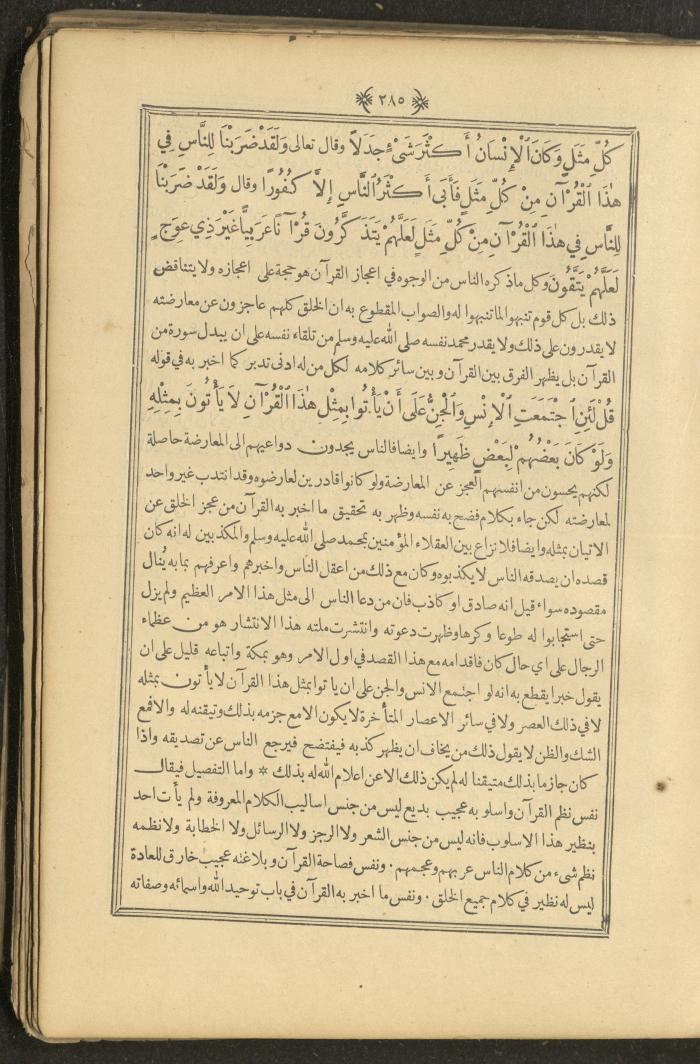 ﴿ ٢٨٥ ﴾
كُلِّ مَثَلٍ وَكَانَ ٱلْإِنْسَانُ أَكْثَرَ شَيْءٍ جَدَلًا وقال تعالى وَلَقَدْ ضَرَبْنَا لِلنَّاسِ فِي
هٰذَا ٱلْقُرْآنِ مِنْ كُلِّ مَثَلٍ فَأَبَى أَكْثَرُ ٱلنَّاسِ إِلَّا كُفُورًا وقال وَلَقَدْ ضَرَبْنَا
لِلنَّاسِ فِي هٰذَا ٱلْقُرْآنِ مِنْ كُلِّ مَثَلٍ لَعَلَّهُمْ يَتَذَكَّرُونَ قُرْآنًا عَرَبِيًّا غَيْرَ ذِي عِوَجٍ
لَعَلَّهُمْ يَتَّقُونَ وكل ماذكره الناس من الوجوه في اعجاز القرآن هو حجة على اعجازه ولا يتناقض
ذلك بل كل قوم تنبهوا لما تنبهوا له والصواب المقطوع به ان الخلق كلهم عاجزون عن معارضته
لا يقدرون على ذلك ولا يقدر محمد نفسه صلى الله عليه وسلم من تلقاء نفسه على ان يبدل سورة من
القرآن بل يظهر الفرق بين القرآن وبين سائر كلامه لكل من له ادنى تدبر كما اخبر به في قوله
قُلْ لَئِنِ ٱجْتَمَعَتِ ٱلْإِنْسُ وَٱلْجِنُّ عَلَى أَنْ يَأْتُوا بِمِثْلِ هٰذَا ٱلْقُرْآنِ لَا يَأْتُونَ بِمِثْلِهِ
وَلَوْ كَانَ بَعْضُهُمْ لِبَعْضٍ ظَهِيرًا وايضا فالناس يجدون دواعيهم الى المعارضة حاصلة
لكنهم يحسون من انفسهم العجز عن المعارضة ولو كانوا قادرين لعارضوه وقد انتدب غير واحد
لمعارضته لكن جاء بكلام فضح به نفسه وظهر به تحقيق ما اخبر به القرآن من عجز الخلق عن
الاتيان بمثله وايضا فلا نزاع بين العقلاء المؤمنين بمحمد صلى الله عليه وسلم والمكذبين له انه كان
قصده ان يصدقه الناس لا يكذبوه وكان مع ذلك من اعقل الناس واخبرهم واعرفهم بما به يُنال
مقصوده سواء قيل انه صادق او كاذب فان من دعا الناس الى مثل هذا الامر العظيم ولم يزل
حتى استجابوا له طوعا وكرها وظهرت دعوته وانتشرت ملته هذا الانتشار هو من عظماء
الرجال على اي حال كان فاقدامه مع هذا القصد في اول الامر وهو بمكة واتباعه قليل على ان
يقول خبرا يقطع به انه لو اجتمع الانس والجن على ان ياتوا بمثل هذا القرآن لا يأتون بمثله
لا في ذلك العصر ولا في سائر الاعصار المتأخرة لا يكون الا مع جزمه بذلك وتيقنه له والا فمع
الشك والظن لا يقول ذلك من يخاف ان يظهر كذبه فيفتضح فيرجع الناس عن تصديقه واذا
كان جازما بذلك متيقنا له لم يكن ذلك الا عن اعلام الله له بذلك * واما التفصيل فيقال
نفس نظم القرآن واسلوبه عجيب بديع ليس من جنس اساليب الكلام المعروفة ولم يأت احد
بنظير هذا الاسلوب فانه ليس من جنس الشعر ولا الرجز ولا الرسائل ولا الخطابة ولا نظمه
نظم شيء من كلام الناس عربهم وعجمهم . ونفس فصاحة القرآن وبلاغته عجيب خارق للعادة
ليس له نظير في كلام جميع الخلق . ونفس ما اخبر به القرآن في باب توحيد الله واسمائه وصفاته